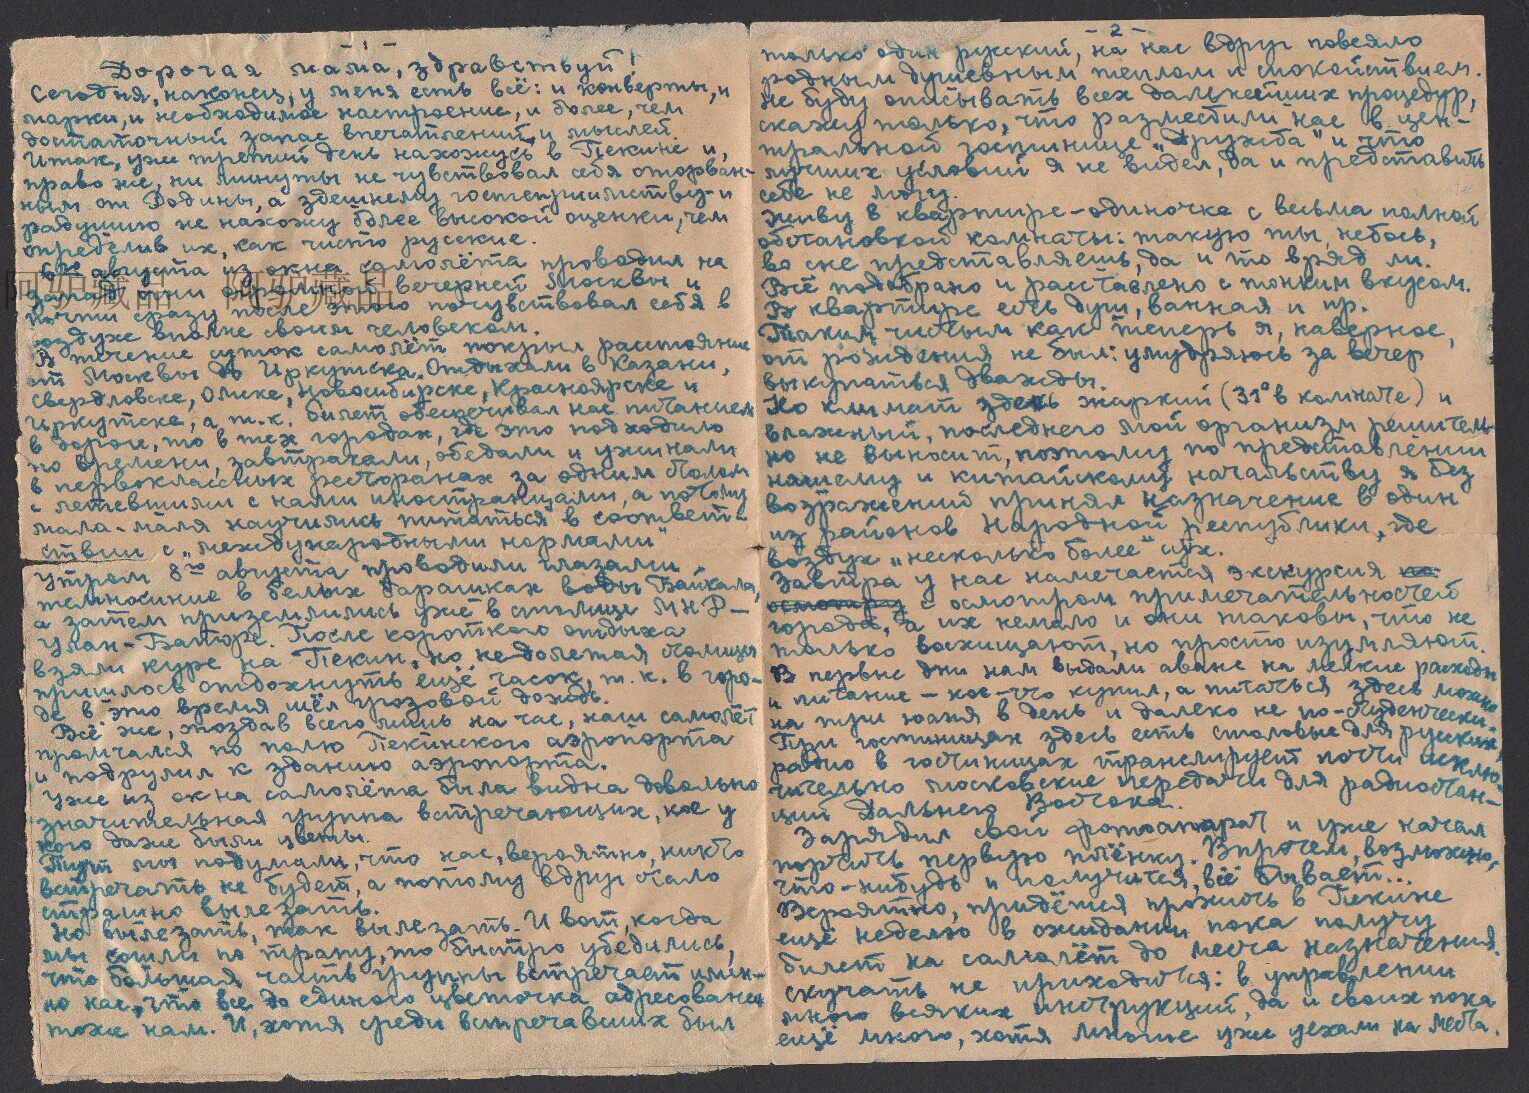 - 1 -
Дорогая мама, здравствуй!
Сегодня, наконец, у меня есть всё: и конверты, и
марки, и необходимое настроение, и более, чем
достаточный запас впечатлений, и мыслей.
Итак, уже третий день нахожусь в Пекине и,
право же, ни минуты не чувствовал себя оторван-
ным от Родины, а здешнему гостеприимству и
радушию не нахожу более высокой оценки, чем
определив их, как чисто русские.
августа из окна самолёта проводил на
запад огни вечерней Москвы и
почти сразу после этого почувствовал себя в
воздухе вполне своим человеком.
В течение суток самолёт покрыл расстояние
от Москвы до Иркутска. Отдыхали в Казани,
Свердловске, Омске, Новосибирске, Красноярске и
Иркутске, а т.к. билет обеспечивал нас питанием
в дороге, то в тех городах, где это подходило
по времени, завтракали, обедали и ужинали
в первоклассных ресторанах за одним столом
с летевшими с нами иностранцами, а потому
мала-маля научились питаться в соответ-
ствии с „международными нормами"
Утром 8го августа проводили глазами
темносиние в белых барашках воды Байкала,
а затем приземлились уже в столице МНР —
Улан-Баторе. После короткого отдыха
взяли курс на Пекин, но не долетая столицы
пришлось отдохнуть ещё часок, т.к. в горо-
де в это время шёл грозовой дождь.
Всё же, опоздав всего лишь на час, наш самолёт
промчался по полю Пекинского аэропорта
и подрулил к зданию аэропорта.
Уже из окна самолёта была видна довольно
значительная группа встречающих, кое у
кого даже были цветы.
Тут мы подумали, что нас, вероятно, никто
встречать не будет, а потому вдруг стало
страшно вылезать.
Но вылезать, так вылезать. И вот, когда
мы сошли по трапу, то быстро убедились,
что большая часть группы встречает имен-
но нас, что все до единого цветочка адресованы
тоже нам. И, хотя среди встречавших был
- 2 -
только один русский, на нас вдруг повеяло
родным душевным теплом и спокойствием.
Не буду описывать всех дальнейших процедур,
скажу только, что разместили нас в цен-
тральной гостинице „Дружба" и что
лучших условий я не видел, да и представить
себе не могу.
Живу в квартире-одиночке с весьма полной
обстановкой комнаты: такую ты, небось,
во сне представляешь, да и то вряд ли.
Всё подобрано и расставлено с тонким вкусом.
В квартире есть душ, ванная и пр.
Таким чистым как теперь я, наверное,
от рождения не был: умудряюсь за вечер
выкупаться дважды.
Но климат здесь жаркий (31° в комнате) и
влажный, последнего мой организм решитель-
но не выносит, поэтому по представлении
нашему и китайскому начальству я без
возражений принял назначение в один
из районов Народной республики, где
воздух „несколько более" сух.
Завтра у нас намечается экскурсия
с осмотром примечательностей
города, а их немало и они таковы, что не
только восхищают, но просто изумляют.
В первые дни нам выдали аванс на мелкие расходы
и питание – кое-что купил, а питаться здесь можно
на три юаня в день и далеко не по-студенчески.
При гостиницах здесь есть столовые для русских,
радио в гостиницах транслирует почти исклю-
чительно московские передачи для радиостан-
ций Дальнего Востока.
Зарядил свой фотоаппарат и уже начал
портить первую плёнку. Впрочем, возможно,
что-нибудь и получится, всё бывает...
Вероятно, придётся прожить в Пекине
ещё неделю в ожидании пока получу
билет на самолёт до места назначения.
скучать не приходится: в управлении
много всяких инструкций, да и своих пока
ещё много, хотя многие уже уехали на места.
阿驴藏品
阿驴藏品